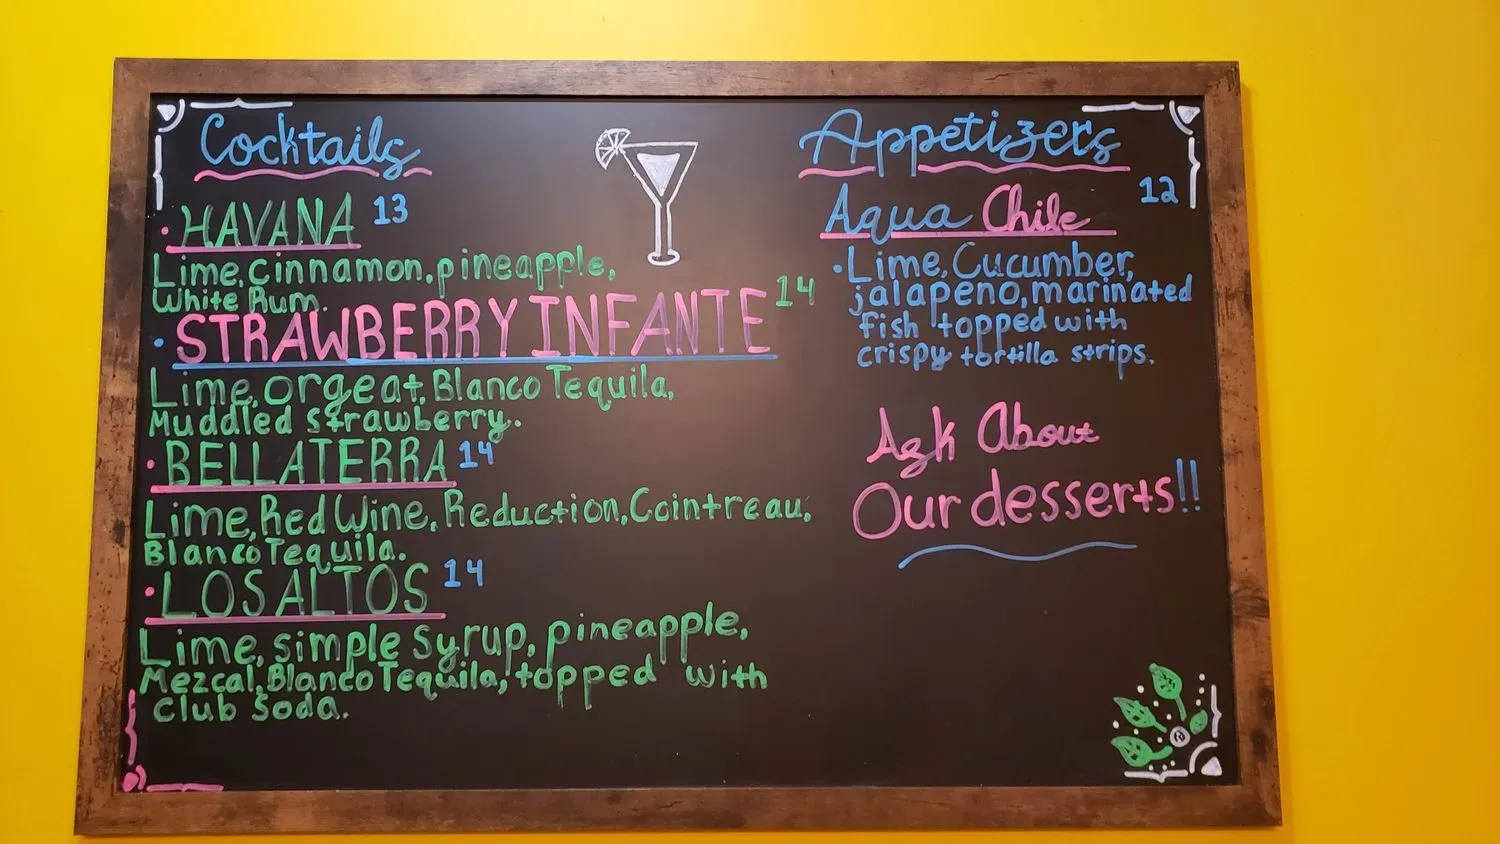 Cocktails
• HAVANA 13
Lime, cinnamon, pineapple,
White Rum.
• STRAWBERRY INFANTE 14
Lime, orgeat, Blanco Tequila,
Muddled strawberry.
• BELLATERRA 14
Lime, Red Wine, Reduction, Cointreau,
Blanco Tequila.
• LOS ALTOS 14
Lime, simple Syrup, pineapple,
Mezcal, Blanco Tequila, topped with
Club Soda.
Appetizers
Aqua Chile 12
• Lime, Cucumber,
jalapeno, marinated
fish topped with
crispy tortilla strips.
Ask About
Our desserts!!